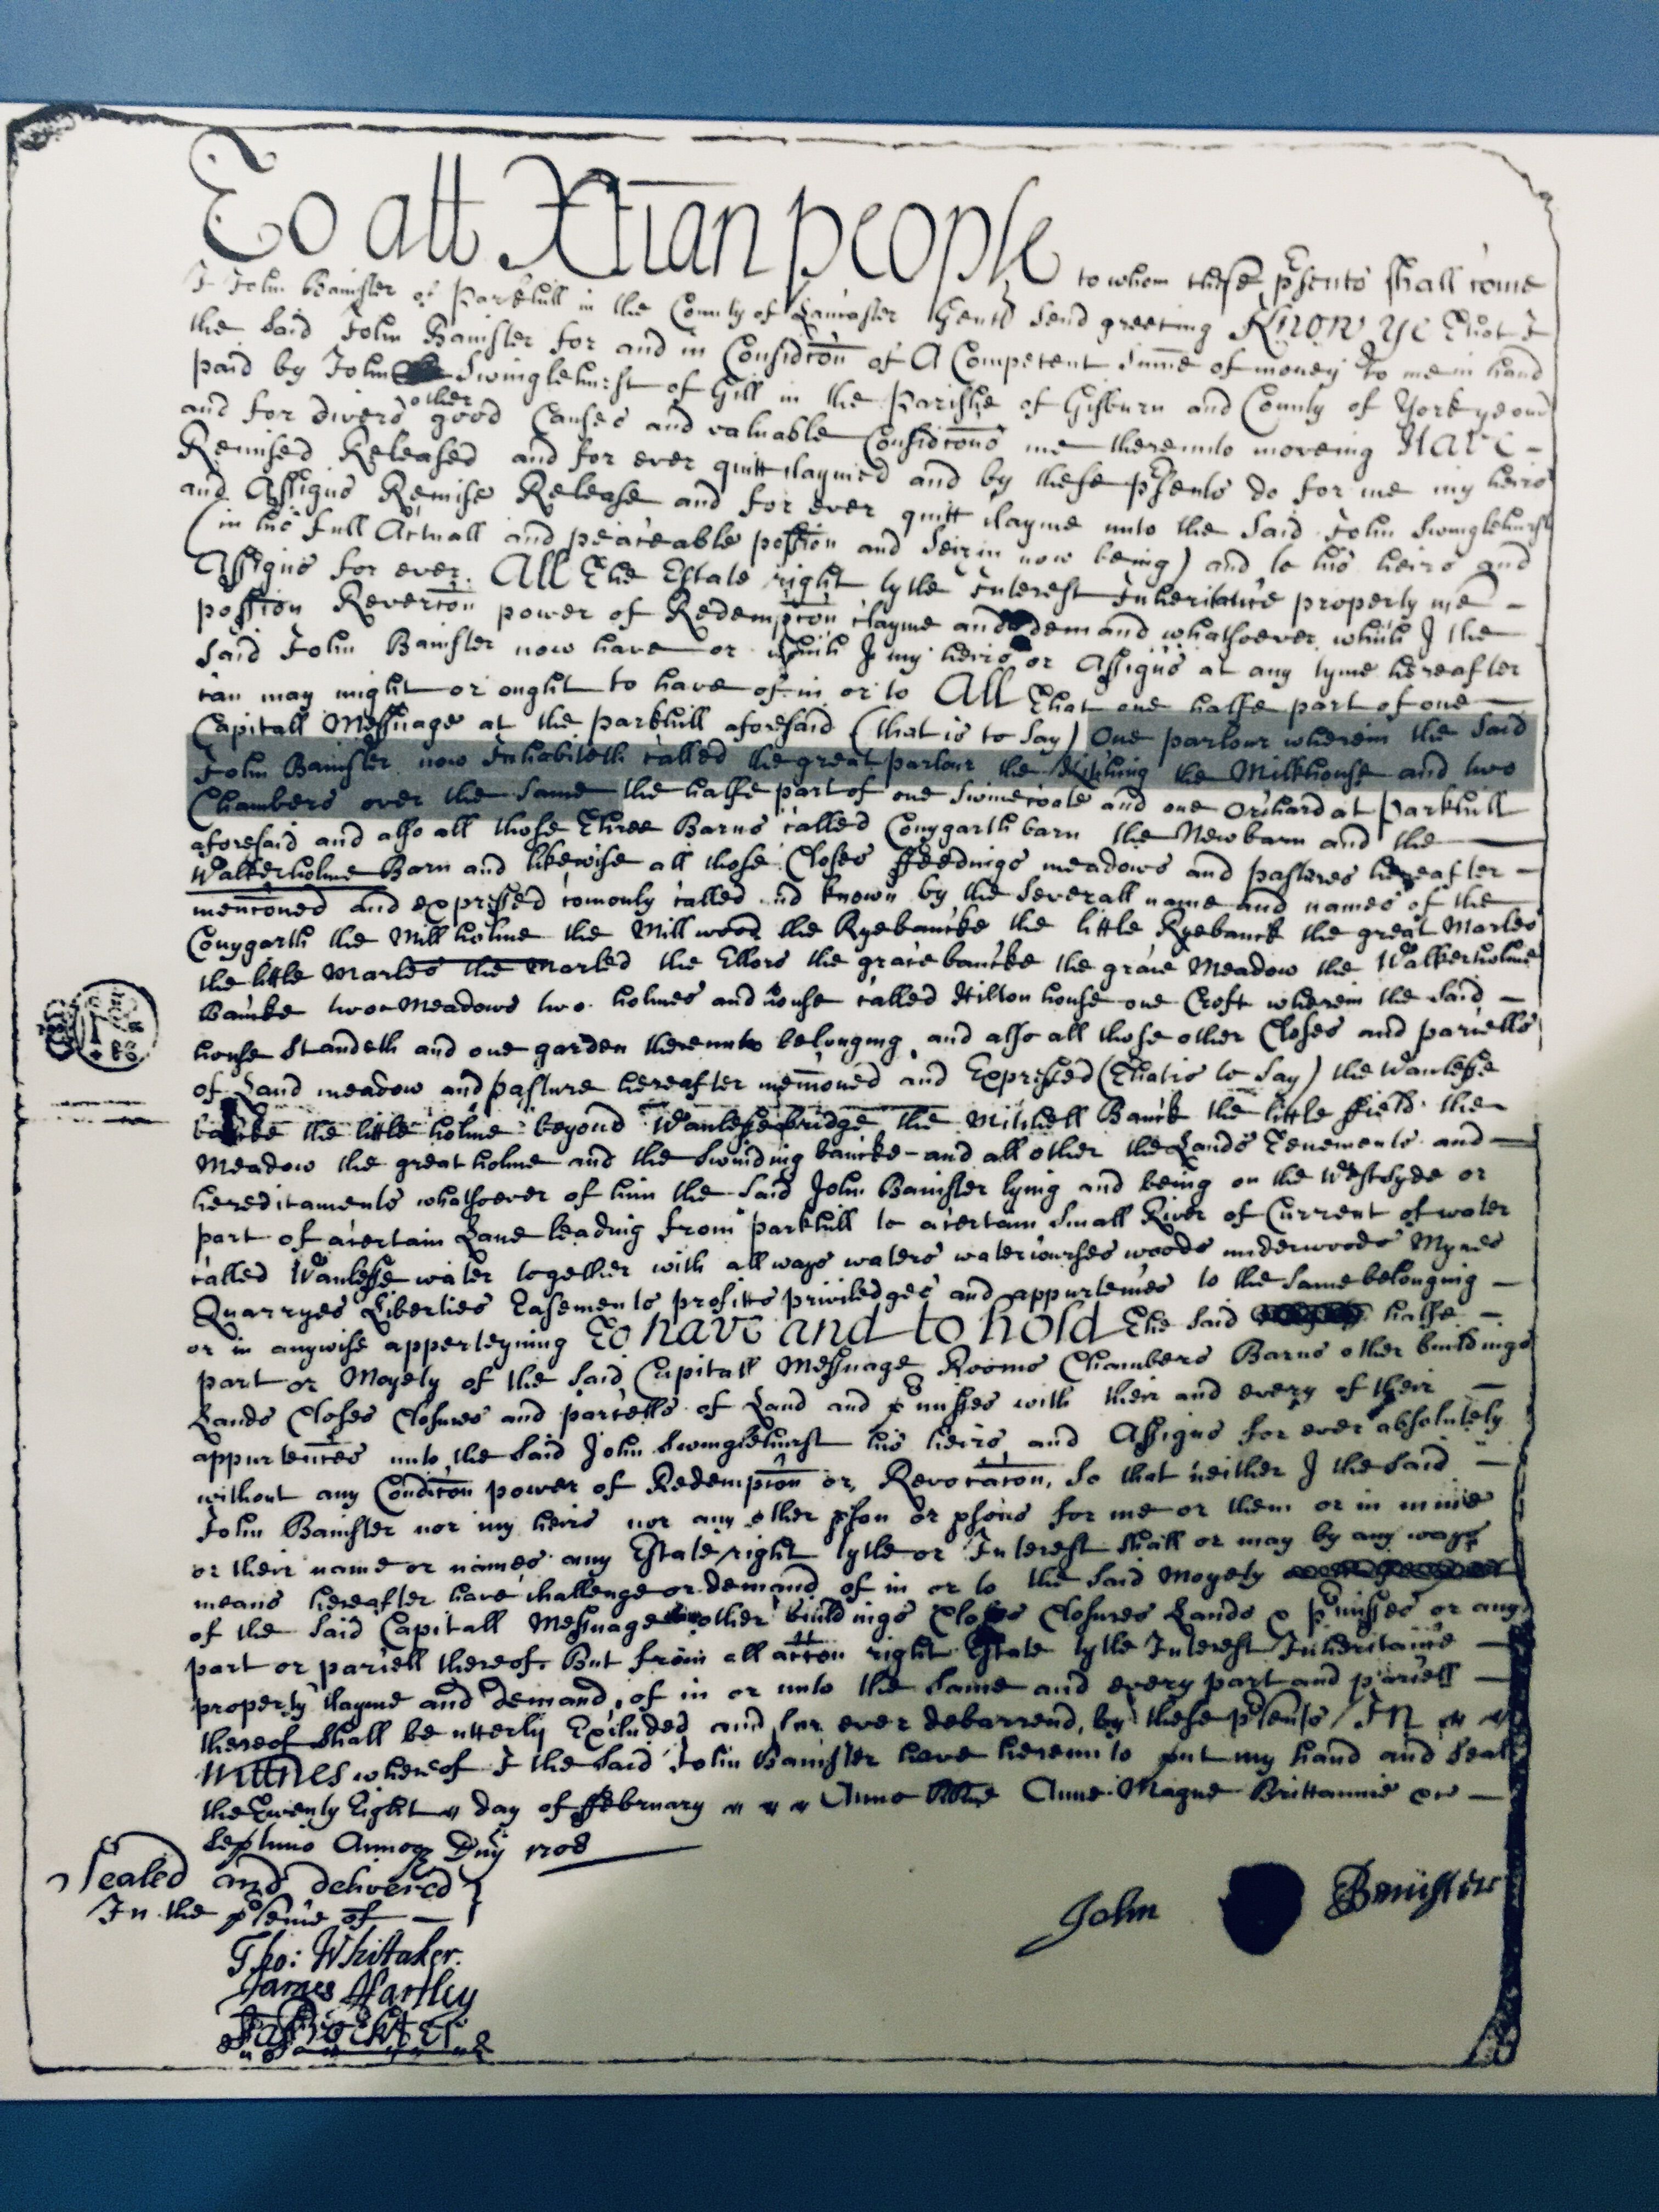 To all Xtian people to whom these psents shall come
I John Banister of Parkhill in the County of Lancaster Gentl send greeting Know ye That I
the said John Banister for and in Considcon of A Competent Summe of money to me in hand
paid by John Swinglehurst of Gill in the Parishe of Gisburn and County of York yeom
and for divers other good Causes and valuable Considcons me thereunto moveing Have -
Remised Released and for ever quitt claymed and by these psents do for me my heirs
and Assigns Remise Release and for ever quitt clayme unto the said John Swinglehurst
(in his full Actuall and peaceable possion and Seizin now being) and to his heirs and
Assigns for ever. All The Estate right tytle Interest Inheritance property use -
possion Revercon power of Redempcon clayme and demand whatsoever which I the
said John Banister now have or which I my heirs or Assigns at any tyme hereafter
can may might or ought to have of in or to All That one halfe part of one
Capitall Messuage at the parkhill aforesaid (that is to say) One parlour wherein the said
John Banister now Inhabiteth called the great parlour the Kitching the Milkhouse and two
Chambers over the same the halfe part of one Swinecoate and one Orchard at Parkhill
aforesaid and also all those Three Barns called Conygarth barn the New barn and the
Walkerholme Barn and likewise all those Closes ffeedings meadows and pastures hereafter -
menconed and expressed comonly called and known by the severall name and names of the
Conygarth the Mill holme the Mill wood the Ryebancke the little Ryebanck the great Marled
the little Marled the Marled the Ellors the grace bancke the grace Meadow the Walkerholme
Bancke two Meadows two holmes and house called Hilton house one Croft wherein the said -
house Standeth and one garden thereunto belonging and also all those other Closes and parcells
of Land meadow and pasture hereafter menconed and Expressed (That is to say) the Wanlesse
bancke the little holme beyond Wanlesse bridge the Mitchell Banck the little ffield the
Meadow the great holme and the Swinding bancke - and all other the Lands Tenements and
hereditaments whatsoever of him the said John Banister lying and being on the West syde or
part of a certain Lane leading from parkhill to a certain Small River of Current of water
called Wanlesse water together with all ways waters watercourses woods underwoods Mynes
Quarryes Liberties Easements profitts priviledges and appurtences to the same belonging -
or in anywise apperteyning To have and to hold The said halfe -
part or Moyety of the said Capitall Messuage Rooms Chambers Barns other buildings
Lands Closes Closures and parcells of Land and pmisses with their and every of their -
appurtences unto the said John Swinglehurst his heirs and Assigns for ever absolutely
without any Condicon power of Redempcon or Revocacon, So that neither I the said -
John Banister nor my heirs nor any other pson or psons for me or them or in mine
or their name or names any Estate right tytle or Interest shall or may by any ways
means hereafter have challenge or demand of in or to the said Moyety
of the said Capitall Messuage other buildings Closes Closures Lands pmisses or any
part or parcell thereof. But from all accon right Estate tytle Interest Inheritance -
property clayme and demand, of in or unto the same and every part and parcell -
thereof shall be utterly Excluded and for ever debarrend, by these psents / In
Wittnes whereof I the said John Banister have hereunto put my hand and Seal
the Twenty Eight day of ffebruary Anno Anne Magne Brittannie
septimo Annoq Dni 1708
Sealed and delivered
In the psence of -
John Banister
Tho: Whitaker.
James Hartley